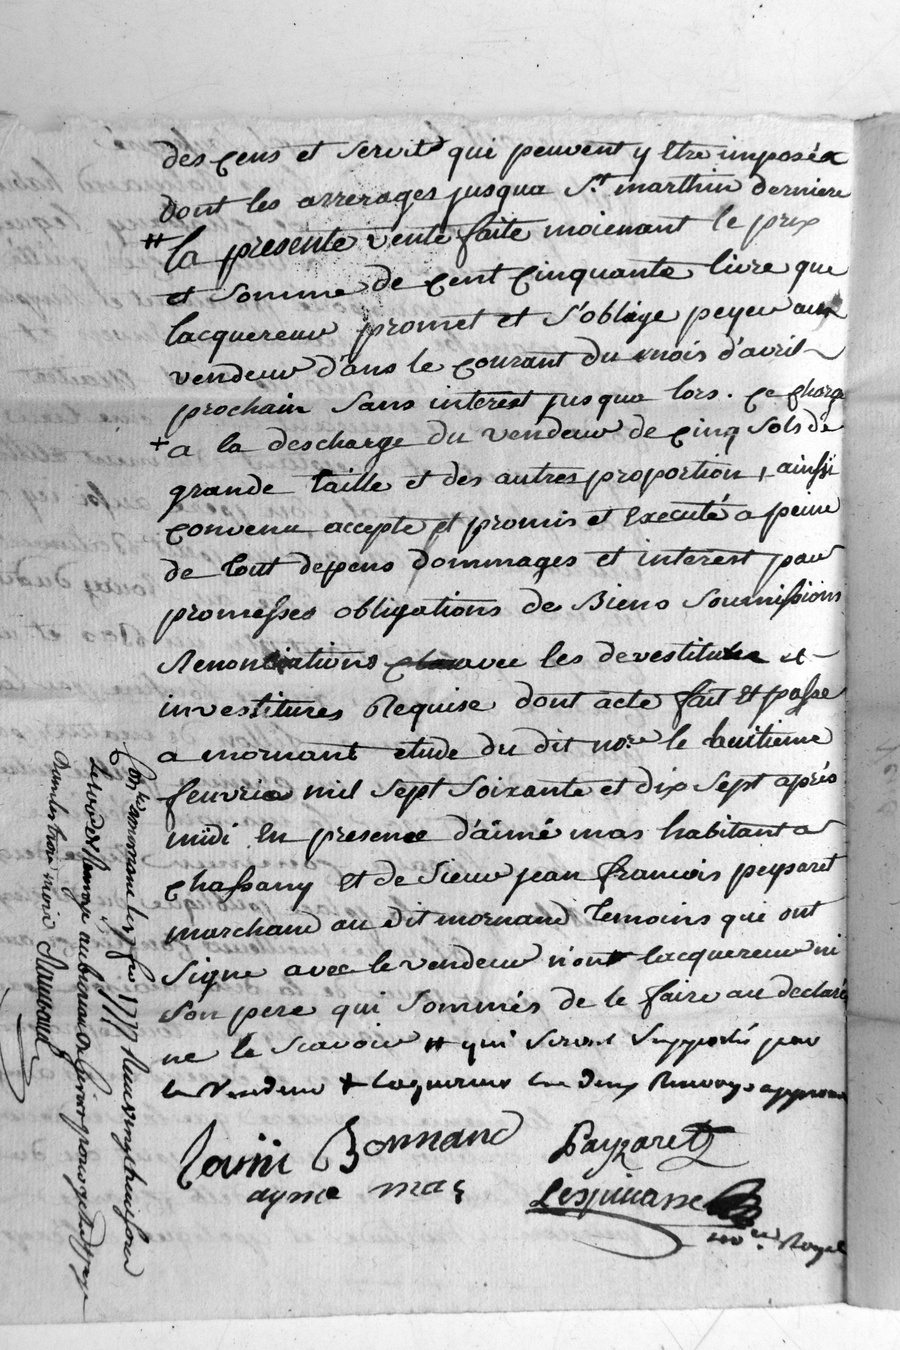 des cens et servit qui peuvent y etre imposéx
dont les arrerages jusqua St marthin derniere
# la presente vente faite moienant le prix
et somme de cent cinquante livre que
lacquereur promet et s'oblige peyer aux
vendeur dans le courant du mois d'avril
prochain sans interest jusqua lors. ce charg
+ a la descharge du vendeur de cinq sols de
grande taille et des autres proportion, ainssi
convenu accepte et promis et executé a peine
de tout depens dommages et interest par
promesses obligations de Biens soumissions
Renontiations avec les devestiture et
investitures Requise dont acte fait et passe
a mornant etude du dit nore le huitieme
feuvrier mil sept soixante et dix sept aprés
midi En presence d'aimé mas habitant a
chassany et de sieur jean francois peyzaret
marchand au dit mornand temoins qui ont
signe avec le vendeur n'ont lacquereur ni
son pere qui sommés de le faire au declaré
ne le scavoir # qui seront supportés par
le Vendeur + laquereur les deux Renvoys approuv
Louiii Bonnand Payzaret
ayme mas Lespinasse
nore Royal
a mornant le 17 fev 1777 Reçu vingt huit sous